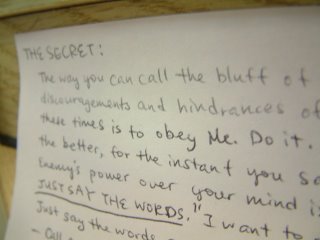 THE SECRET:
The way you can call the bluff of
discouragements and hindrances of
these times is to obey Me. Do it.
the better, for the instant you so
Enemy's power over your mind is
JUST SAY THE WORDS, "I want to
Just say the words
- Call